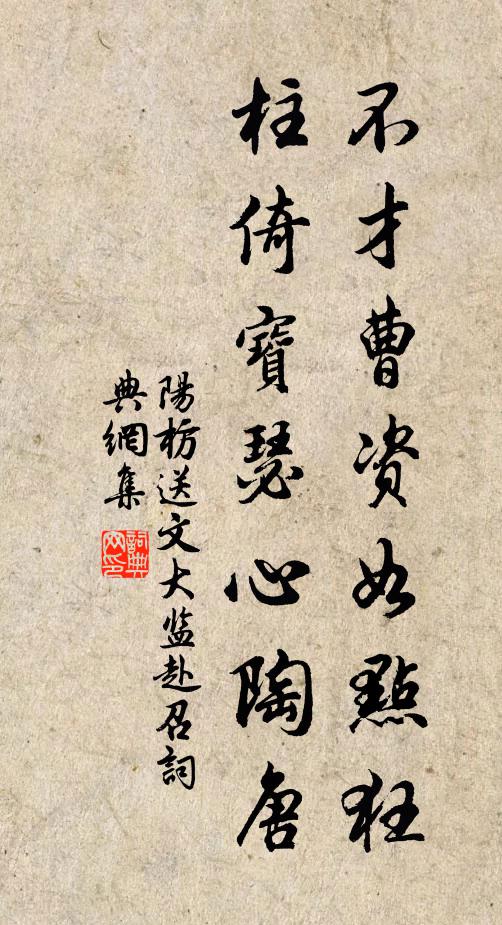 不才曹资如點狂
柱倚寶瑟心陶唐
陽枋送文大监赴召詞
典網集
詞典网印